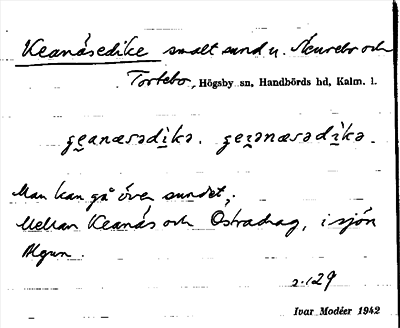 Keanäsedike smalt sund u. Åkurebo och
Torlebo, Högsby sn, Handbörds hd, Kalm. l.
geanæsədikə. geɪənæsədikə.
Man kan gå över sundet.
Mellan Keanäs och Östradrag, i sjön
Algun.
2.1.29
Ivar Modéer 1942